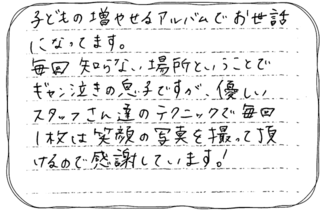 子どもの増やせるアルバムでお世話
になってます。
毎回知らない場所ということで
ギャン泣きの息子ですが、優しい
スタッフさん達のテクニックで毎回
1枚は笑顔の写真を撮って頂
けるので感謝しています!